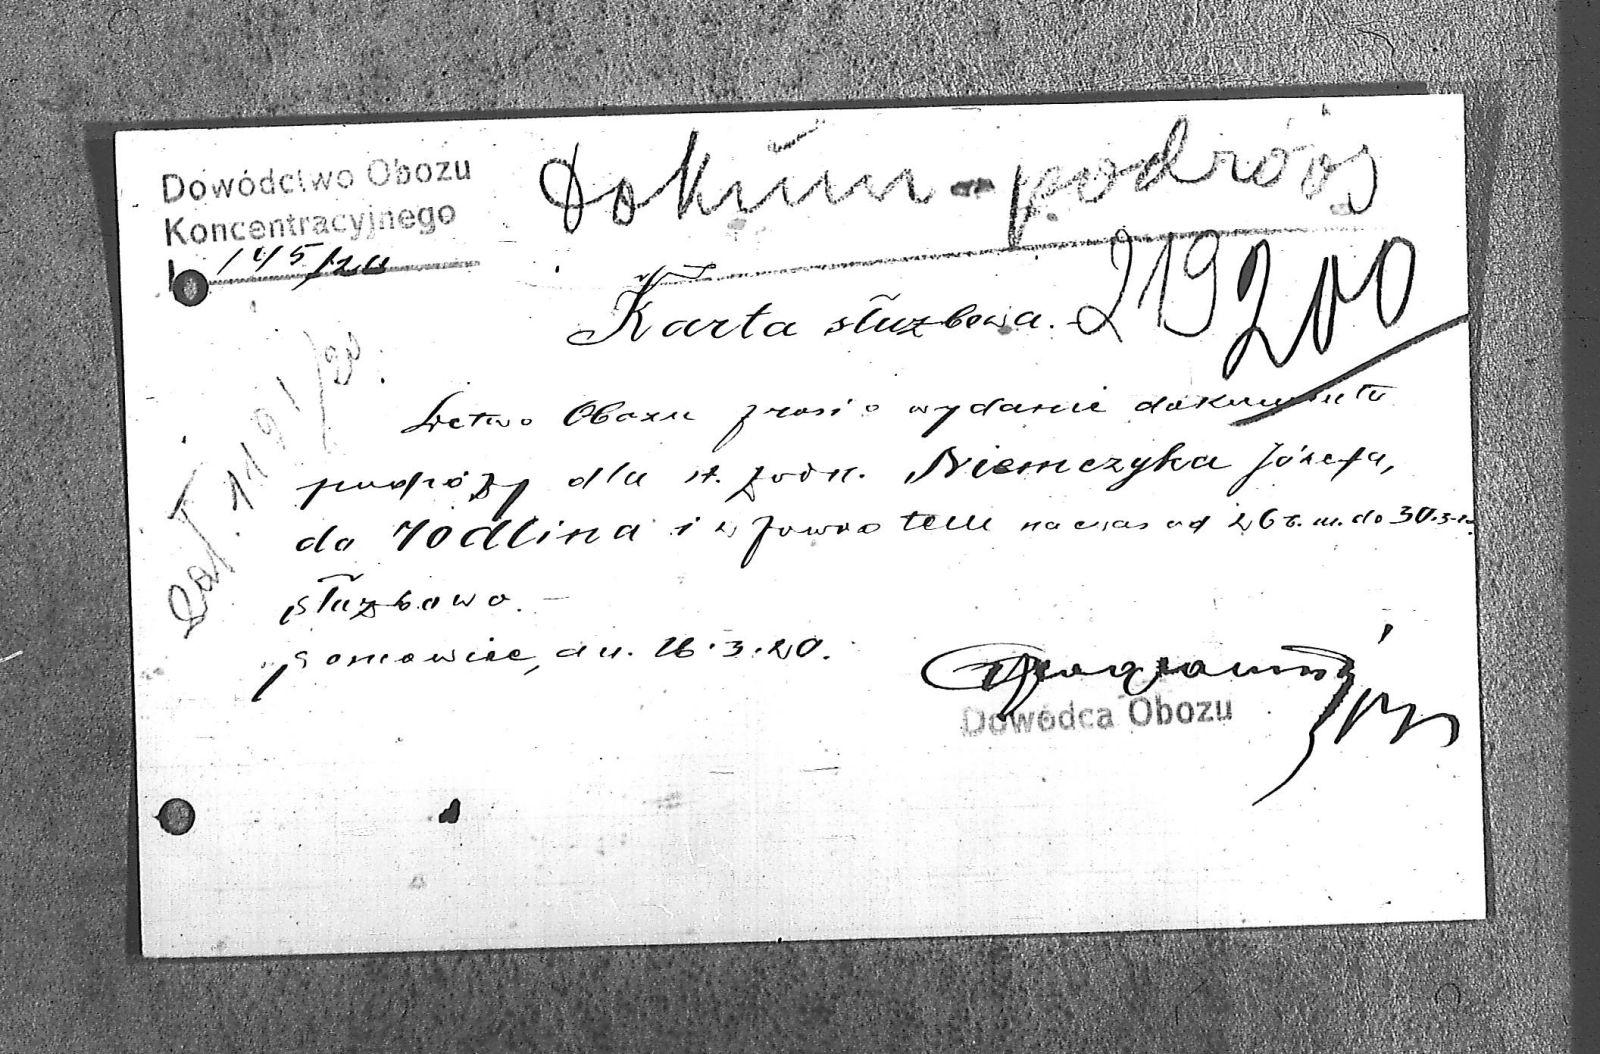 Dowództwo Obozu
Koncentracyjnego
L 145/20
Dokum - podróż
Karta służbowa. - 219 200
zał. 1191/20.
Dctwo Obozu prosi o wydanie dokumentu
podróży dla st. żołn. Niemczyka Józefa,
do Jodlina i z powrotem na czas od 26 b. m. do 30.3.
służbowo. -
Sosnowiec, dn. 26.3.20.
Dowódca Obozu